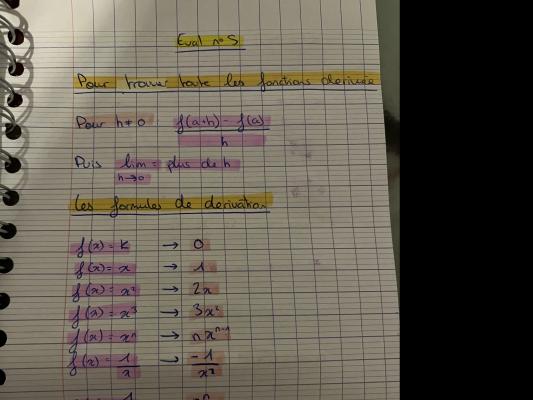 Eval n°5
Pour trouver toute les fonctions derivée
Pour h≠0 f(a+h) - f(a)
h
Puis lim = plus de h
h→0
Les formules de derivation
f(x) = k → 0
f(x) = x → 1
f(x) = x² → 2x
f(x) = x³ → 3x²
f(x) = xⁿ → nxⁿ⁻¹
f(x) = 1/x → -1/x²